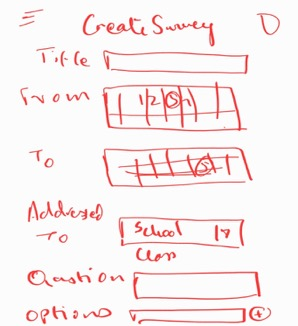 Create Survey
Title
From
12
To
5
Addressed
To
School
Class
Question
Options